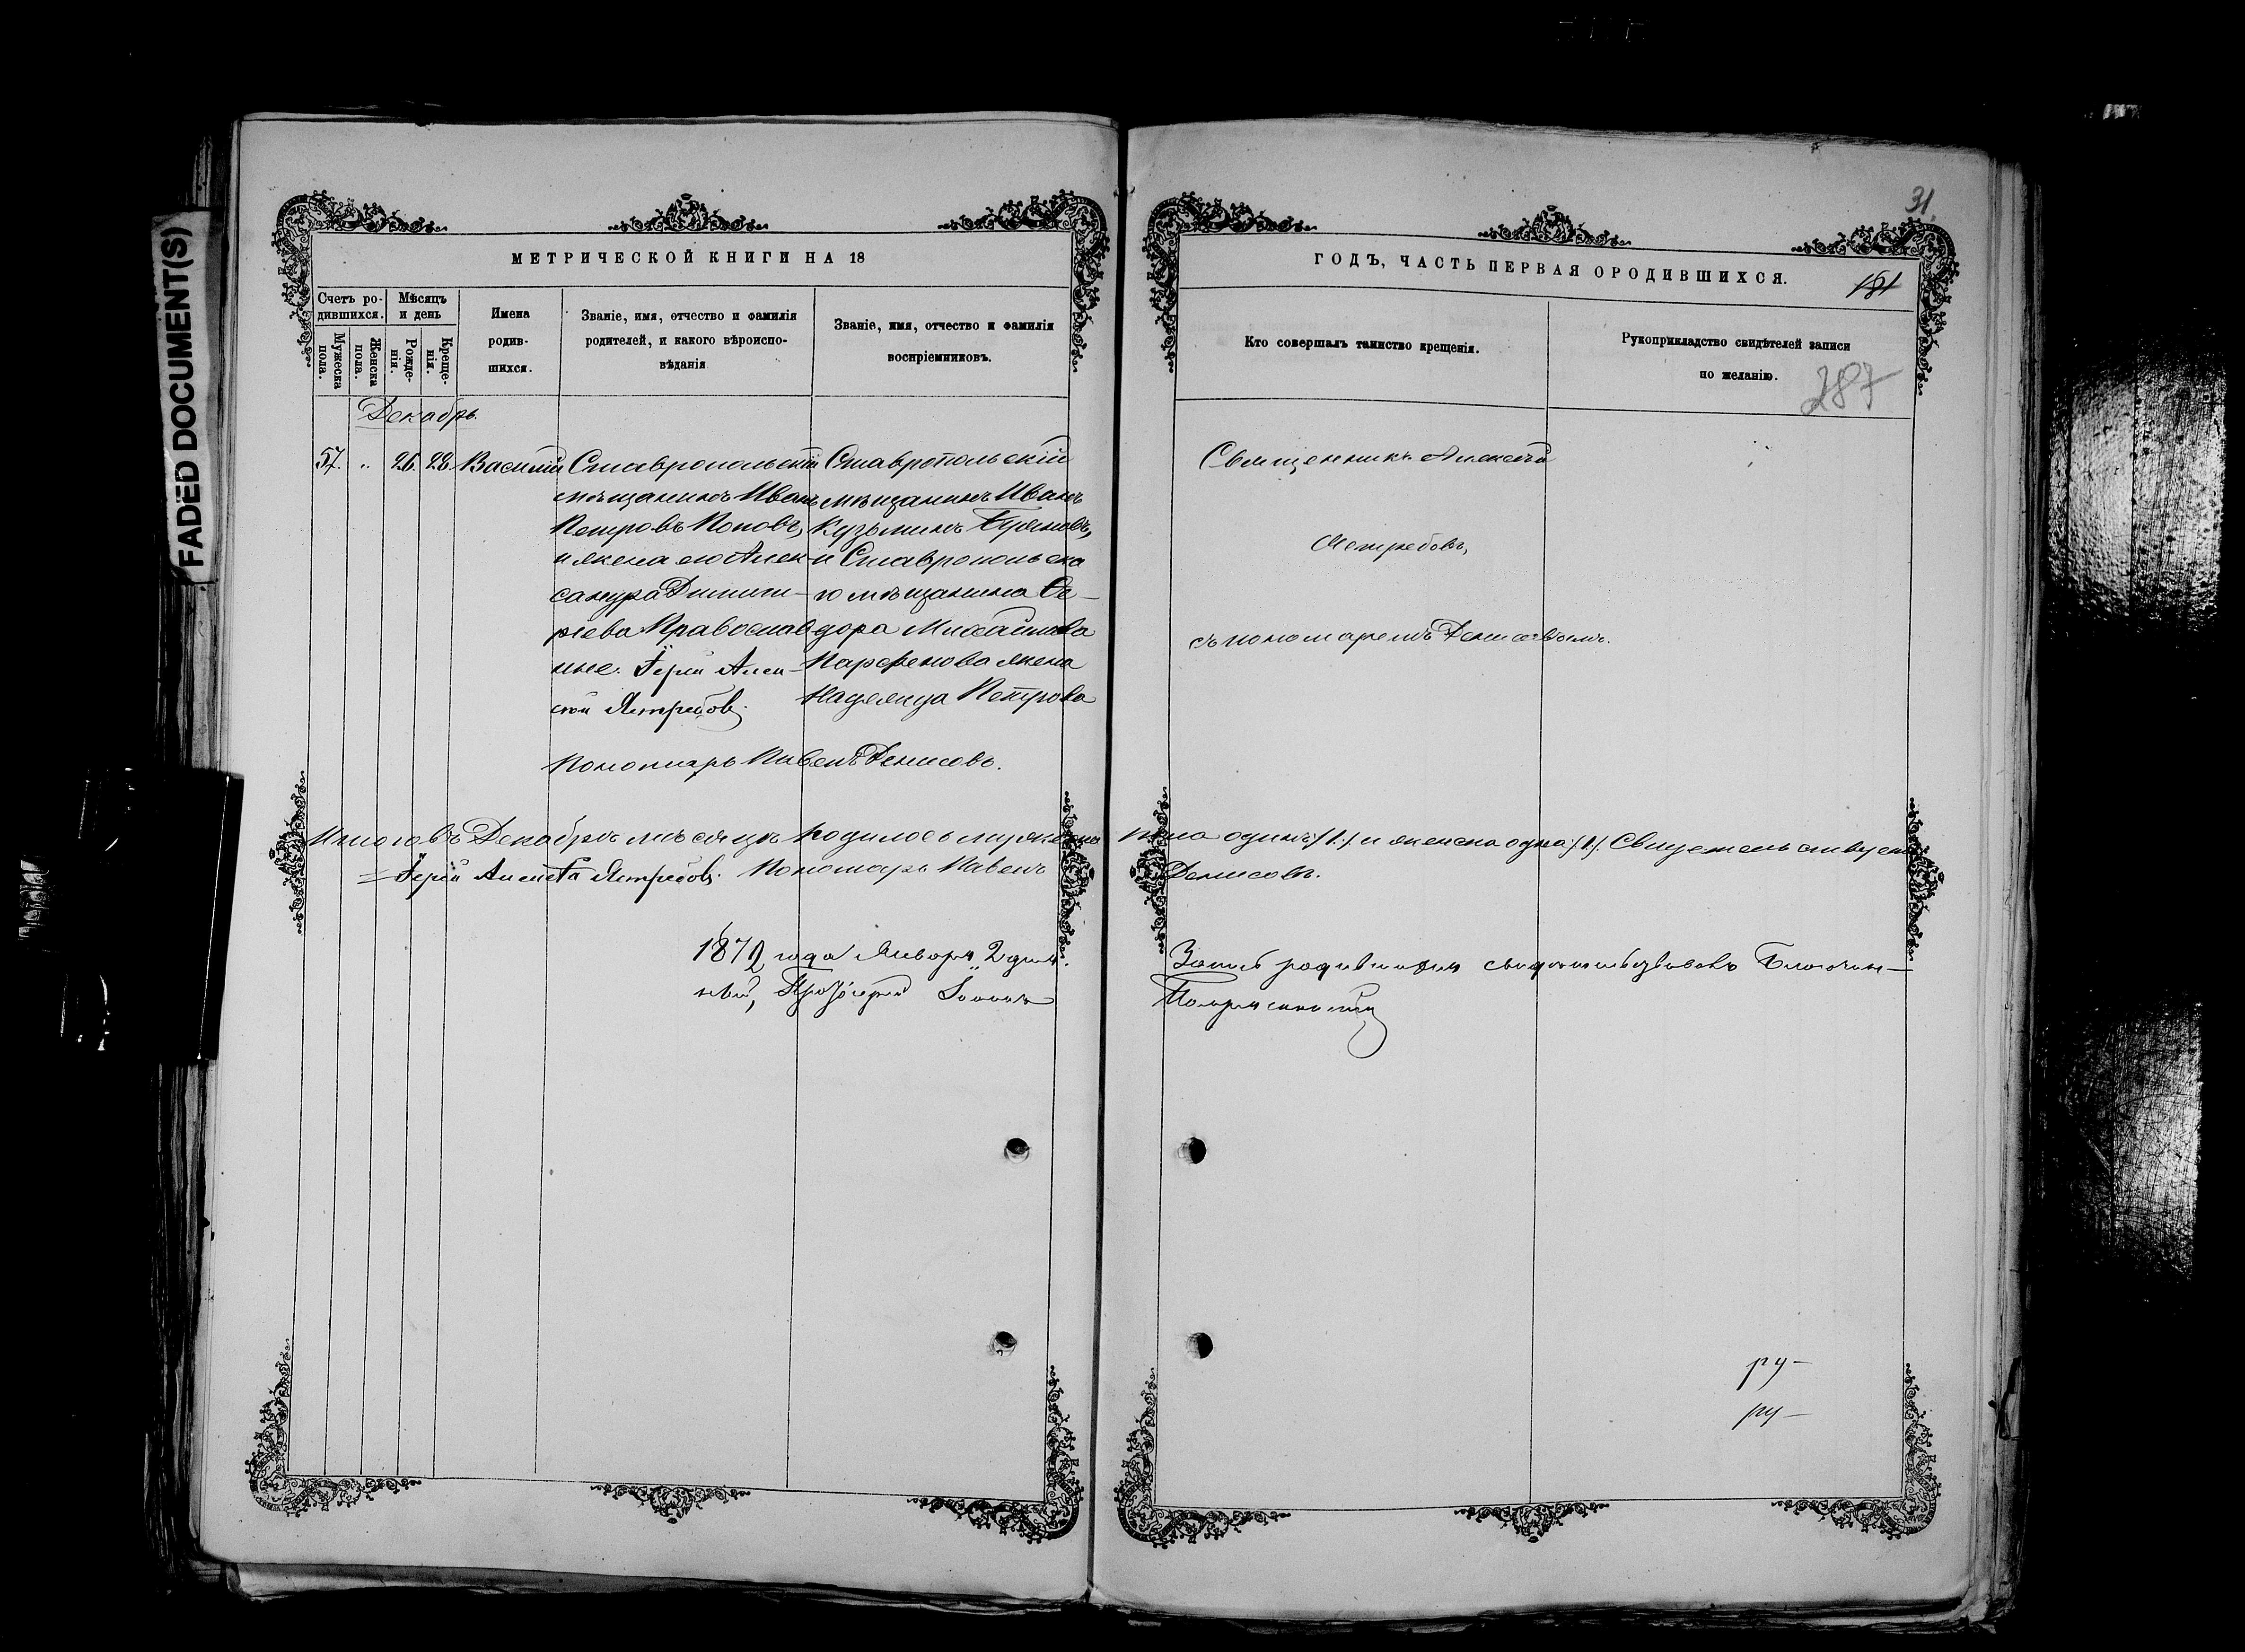 FADED DOCUMENT(S)
МЕТРИЧЕСКОЙ КНИГИ НА 18
Счетъ ро-
дившихся.
Мужеска
пола.
Женска
пола.
Мѣсяцъ
и день
Рожде-
нія.
Креще-
нія.
Имена
родив-
шихся.
Званіе, имя, отчество и фамилія
родителей, и какого вѣроиспо-
вѣданія
Званіе, имя, отчество и фамилія
воспріемниковъ.
Декабрь.
57. " 26. 28. Василій
Ставропольскій
мѣщанинъ Иванъ
Петровъ Поповъ,
и жена его Алек-
сандра Димит-
ріева Православ
ные. Іерей Алек-
сѣй Ястребовъ.
Ставропольскій
мѣщанинъ Иванъ
Кузьминъ
и Ставропольска
го мѣщанина Ѳе-
дора Михайлова
Парфенова жена
Надежда Петрова
Пономарь Павелъ Денисовъ.
Итого въ Декабрѣ мѣсяцѣ родилось мужеска
Іерей Алексѣй Ястребовъ. Пономарь Павелъ
1872 года Января 2 дня.
ный, Протоіерей Іоаннъ
31.
ГОДЪ, ЧАСТЬ ПЕРВАЯ О РОДИВШИХСЯ.
181
Кто совершалъ таинство крещенія.
Рукоприкладство свидѣтелей записи
по желанію.
287
Священникъ Алексѣй
Ястребовъ,
съ пономаремъ Денисовымъ.
пола одинъ /1./ и женска одна /1/.
Денисовъ.
Запись родившихся свидѣтельствовалъ Благочин-
ру-
ру-